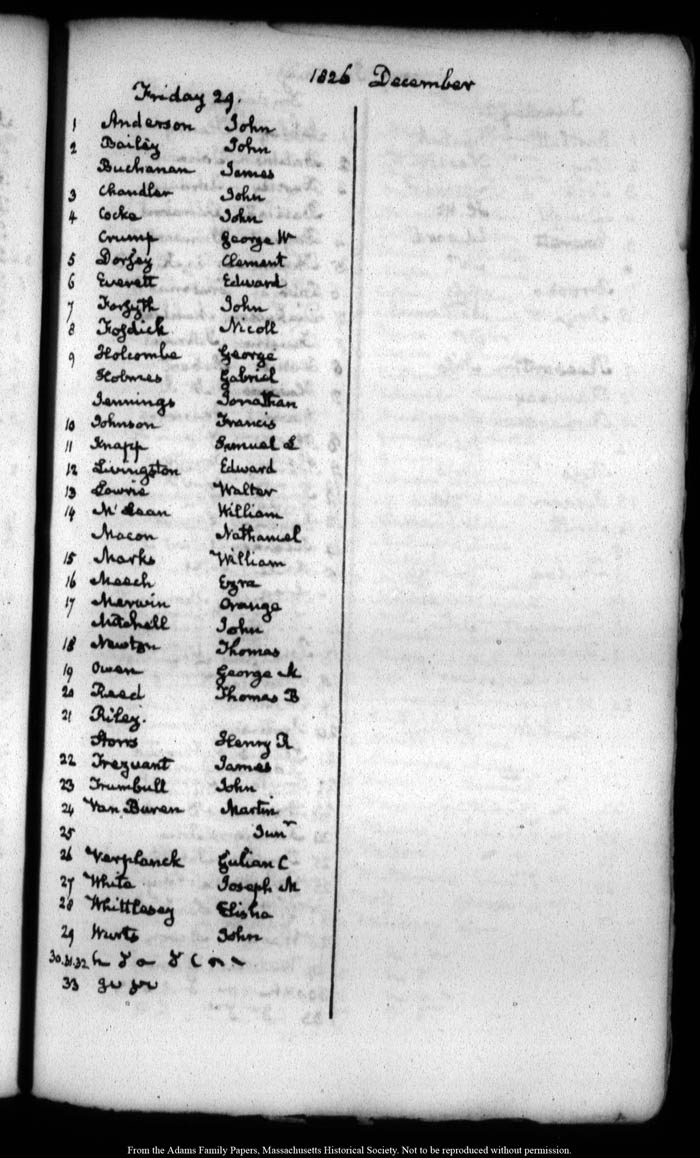 1826 December
Friday 29.
1 Anderson John
2 Bailey John
Buchanan James
3 Chandler John
4 Cocke John
Crump George W
5 Dorsey Clement
6 Everett Edward
7 Forsyth John
8 Fosdick Nicoll
9 Holcombe George
Holmes Gabriel
Jennings Jonathan
10 Johnson Francis
11 Knapp Samuel L
12 Livingston Edward
13 Lowrie Walter
14 McLean William
Macon Nathaniel
15 Marks William
16 Meech Ezra
17 Merwin Orange
Mitchell John
18 Newton Thomas
19 Owen George
20 Reed Thomas B
21 Riley.
Storrs Henry R
22 Trezvant James
23 Trumbull John
24 Van Buren Martin
25 Junr
26 Verplanck Gulian C
27 White Joseph M
28 Whittlesey Elisha
29 Wurts John
30.31.32
33
From the Adams Family Papers, Massachusetts Historical Society. Not to be reproduced without permission.